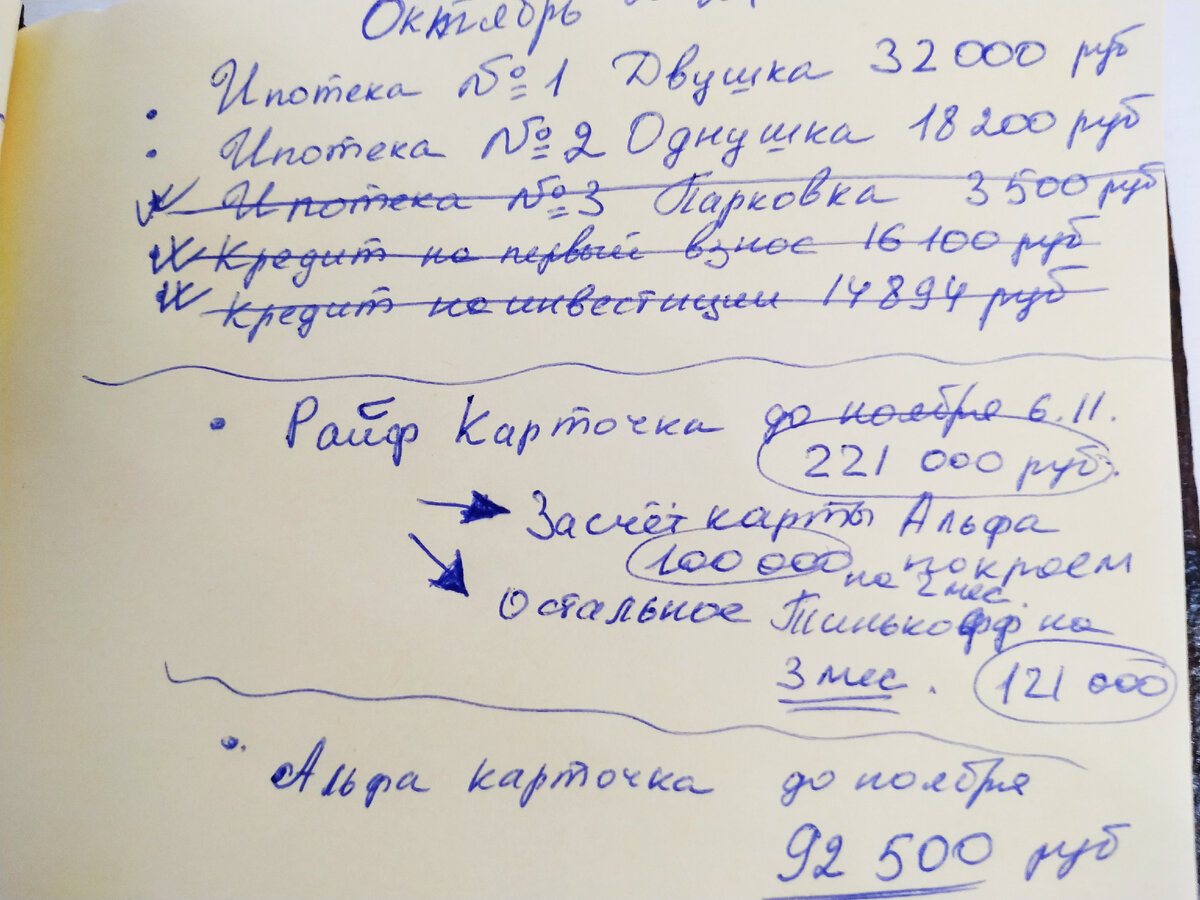 Октябрь
Ипотека №1 Двушка 32 000 руб
Ипотека №2 Однушка 18 200 руб
Ипотека №3 Парковка 3 500 руб
Кредит на первый взнос 16 100 руб
Кредит на инвестиции 14 894 руб
Райф Карточка до ноября 6.11.
221 000 руб.
За счёт карты Альфа
100 000 покроем
на 2 мес.
Остальное Тинькофф на
3 мес. 121 000
Альфа карточка до ноября
92 500 руб